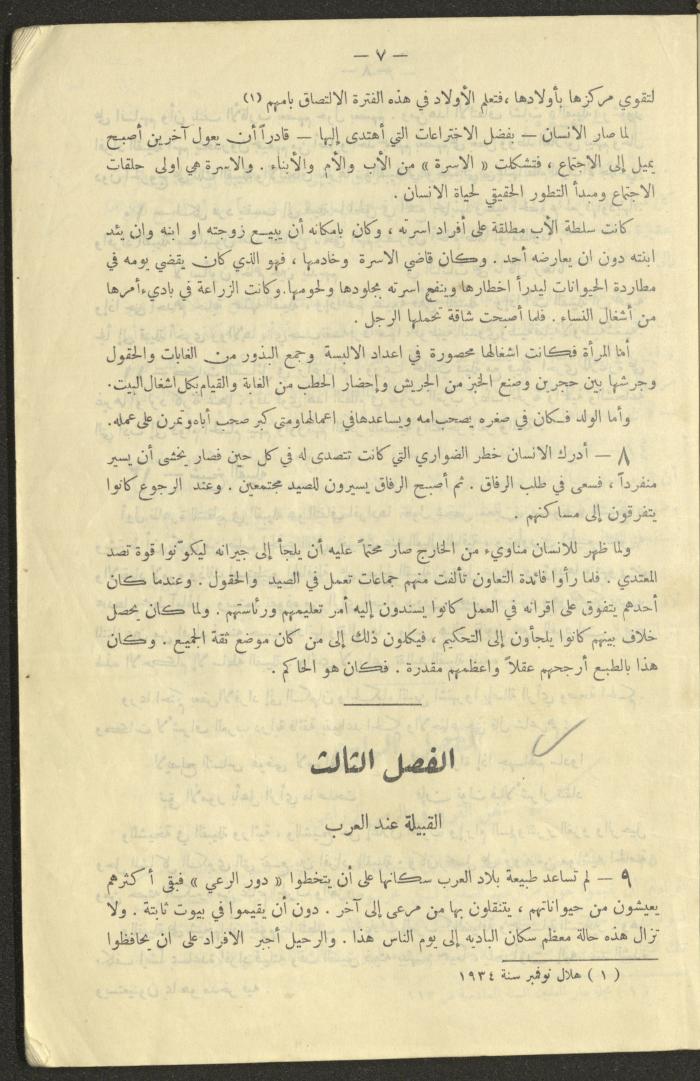 — ٧ —
لتقوي مركزها بأولادها ،فتعلم الأولاد في هذه الفترة الالتصاق بامهم (١)
لما صار الانسان — بفضل الاختراعات التي أهتدى إليها — قادراً أن يعول آخرين أصبح
يميل إلى الاجتماع ، فتشكلت « الاسرة » من الأب والأم والأبناء . والاسرة هي اولى حلقات
الاجتماع ومبدأ التطور الحقيقي لحياة الانسان .
كانت سلطة الأب مطلقة على أفراد اسرته ، وكان بامكانه أن يبيع زوجته او ابنه وان يئد
ابنته دون ان يعارضه أحد . وكان قاضي الاسرة وخادمها ، فهو الذي كان يقضي يومه في
مطاردة الحيوانات ليدرأ اخطارها وينفع اسرته بجلودها ولحومها.وكانت الزراعة في باديء أمرها
من أشغال النساء . فلما أصبحت شاقة تحملها الرجل .
أما المرأة فكانت اشغالها محصورة في اعداد الالبسة وجمع البذور من الغابات والحقول
وجرشها بين حجرين وصنع الخبز من الجريش وإحضار الحطب من الغابة والقيام بكل اشغال البيت.
وأما الولد فكان في صغره يصحب امه ويساعدها في اعمالها ومتى كبر صحب أباه وتمرن على عمله.
٨ — أدرك الانسان خطر الضواري التي كانت تتصدى له في كل حين فصار يخشى أن يسير
منفرداً ، فسعى في طلب الرفاق . ثم أصبح الرفاق يسيرون للصيد مجتمعين . وعند الرجوع كانوا
يتفرقون إلى مساكنهم .
ولما ظهر للانسان مناويء من الخارج صار محتماً عليه أن يلجأ إلى جيرانه ليكوّنوا قوة تصد
المعتدي . فلما رأوا فائدة التعاون تألفت منهم جماعات تعمل في الصيد والحقول . وعندما كان
أحدهم يتفوق على اقرانه في العمل كانوا يسندون إليه أمر تعليمهم ورئاستهم . ولما كان يحصل
خلاف بينهم كانوا يلجأون إلى التحكيم ، فيكلون ذلك إلى من كان موضع ثقة الجميع . وكان
هذا بالطبع أرجحهم عقلاً واعظمهم مقدرة . فكان هو الحاكم .
الفصل الثالث
القبيلة عند العرب
٩ — لم تساعد طبيعة بلاد العرب سكانها على أن يتخطوا « دور الرعي » فبقي أكثرهم
يعيشون من حيواناتهم ، يتنقلون بها من مرعى إلى آخر . دون أن يقيموا في بيوت ثابتة . ولا
تزال هذه حالة معظم سكان الباديه إلى يوم الناس هذا . والرحيل أجبر الافراد على ان يحافظوا
(١) هلال نوفمبر سنة ١٩٣٤